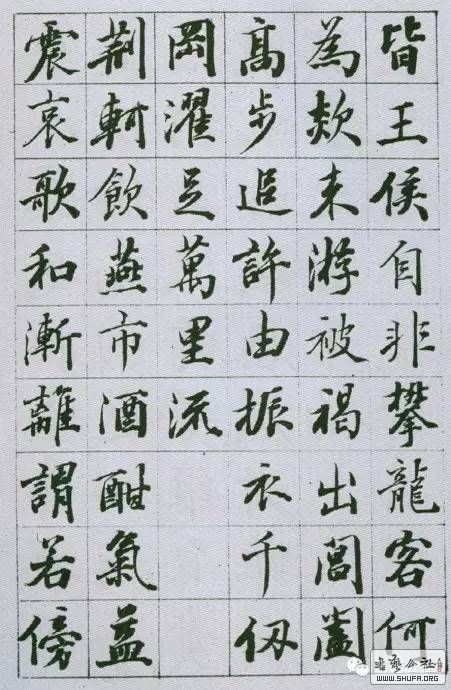 皆王侯自非攀龍客何
為欻来游被褐出閶闔
髙步追許由振衣千仞
岡濯足萬里流
荊軻飲燕市酒酣氣益
震哀歌和漸離謂若傍
書藝公社
WWW.SHUFA.ORG